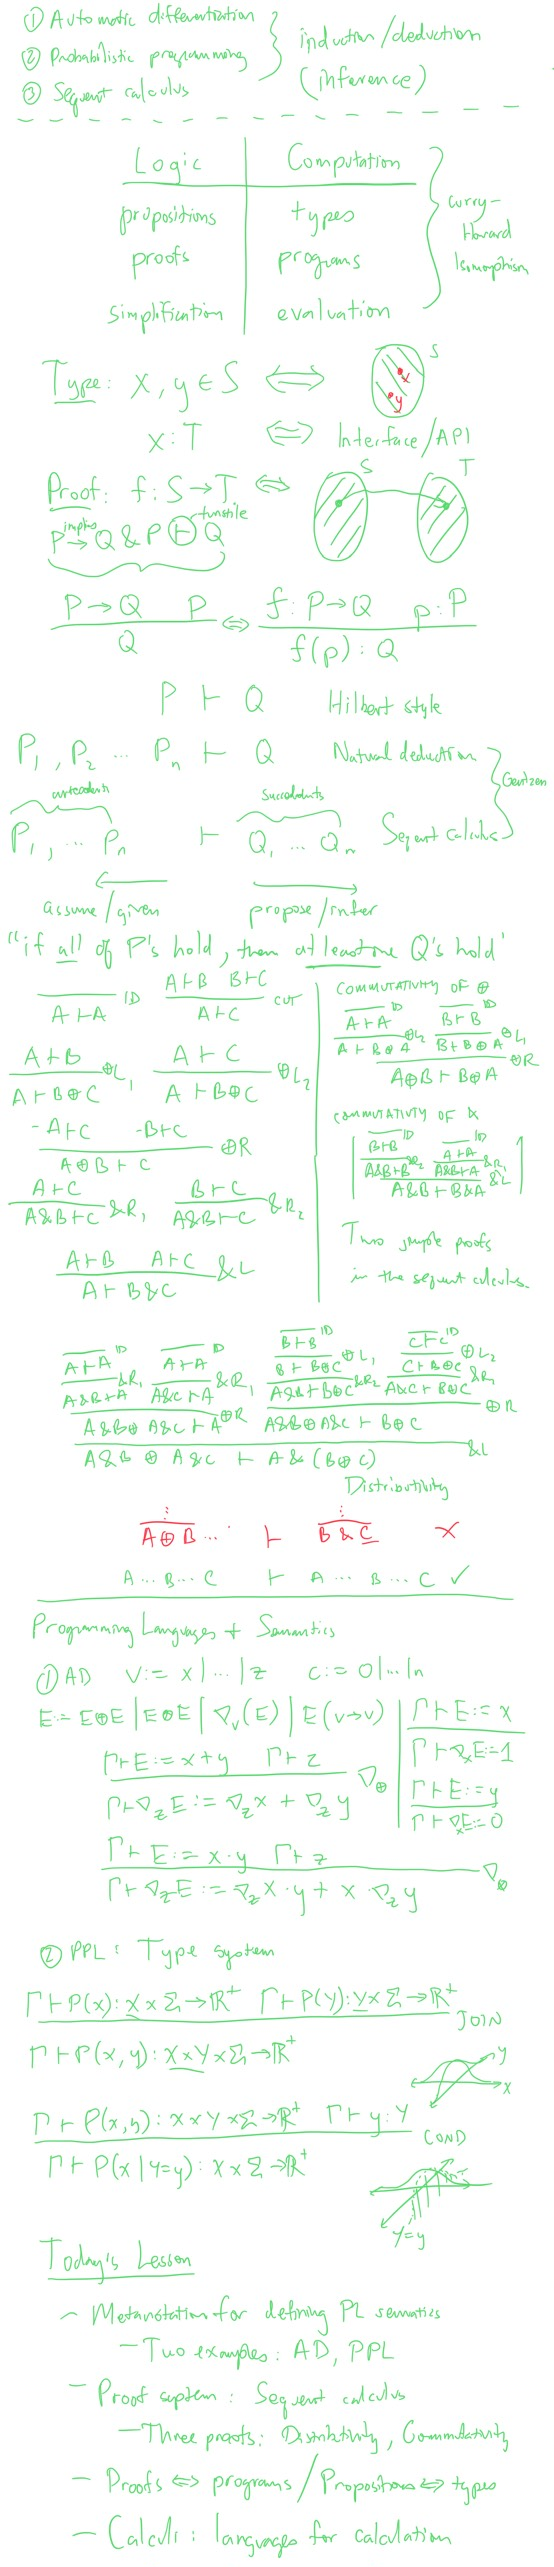 ① Automatic differentiation
② Probabilistic programming
③ Sequent calculus
induction/deduction
(inference)
Logic Computation
propositions types
proofs programs
simplification evaluation
Curry-
Howard
Isomorphism
Type: x, y ∈ S ⟺ S x y
x:T ⟺ Interface/API
Proof: f: S → T ⟺ S T
implies turnstile
P → Q & P ⊢ Q
P → Q P ⟺ f: P → Q p: P
Q f(p): Q
P ⊢ Q Hilbert style
P₁, P₂ ... Pₙ ⊢ Q Natural deduction
Gentzen
antecedents succedents
P₁, ... Pₙ ⊢ Q₁ ... Qₙ Sequent calculus
assume/given propose/infer
"if all of P's hold, then at least one Q's hold"
ID A⊢B B⊢C CUT
A⊢A A⊢C
A⊢B ⊕L₁ A⊢C ⊕L₂
A⊢B⊕C A⊢B⊕C
-A⊢C -B⊢C ⊕R
A⊕B⊢C
A⊢C &R₁ B⊢C &R₂
A&B⊢C A&B⊢C
A⊢B A⊢C &L
A⊢B&C
COMMUTATIVITY OF ⊕
ID ID
A⊢A ⊕L₂ B⊢B ⊕L₁
A⊢B⊕A B⊢B⊕A ⊕R
A⊕B⊢B⊕A
COMMUTATIVITY OF &
ID ID
B⊢B &R₂ A⊢A &R₁
A&B⊢B A&B⊢A &L
A&B⊢B&A
Two simple proofs
in the sequent calculus.
ID ID ID ID
A⊢A &R₁ A⊢A &R₁ B⊢B ⊕L₁ C⊢C ⊕L₂
B⊢B⊕C &R₂ C⊢B⊕C &R₂
A&B⊢A A&C⊢A ⊕R A&B⊢B⊕C A&C⊢B⊕C ⊕R
A&B⊕A&C⊢A A&B⊕A&C⊢B⊕C &L
A&B⊕A&C ⊢ A&(B⊕C)
Distributivity
⋮ ⋮
A⊕B... ⊢ B&C ✗
A...B...C ⊢ A...B...C ✓
Programming Languages + Semantics
① AD v:= x|...|z c:= 0|...|n
E:= E⊕E | E⊗E | ∇ᵥ(E) | E(v→v)
Γ⊢E:= x
Γ⊢∇ₓE:=1
Γ⊢E:=y
Γ⊢∇ₓE:=0
Γ⊢E:= x+y Γ⊢z ∇⊕
Γ⊢∇_z E:= ∇_z x + ∇_z y
Γ⊢E:= x·y Γ⊢z ∇⊗
Γ⊢∇_z E:= ∇_z x·y + x·∇_z y
② PPL: Type system
Γ⊢P(x): X×Σ→ℝ⁺ Γ⊢P(y): Y×Σ→ℝ⁺ JOIN
Γ⊢P(x,y): X×Y×Σ→ℝ⁺
y
x
Γ⊢P(x,y): X×Y×Σ→ℝ⁺ Γ⊢y:Y COND
Γ⊢P(x|Y=y): X×Σ→ℝ⁺
Y=y
Today's Lesson
- Metanotation for defining PL semantics
- Two examples: AD, PPL
- Proof system: Sequent calculus
- Three proofs: Distributivity, Commutativity
- Proofs ⟺ programs / Propositions ⟺ types
- Calculi: languages for calculation